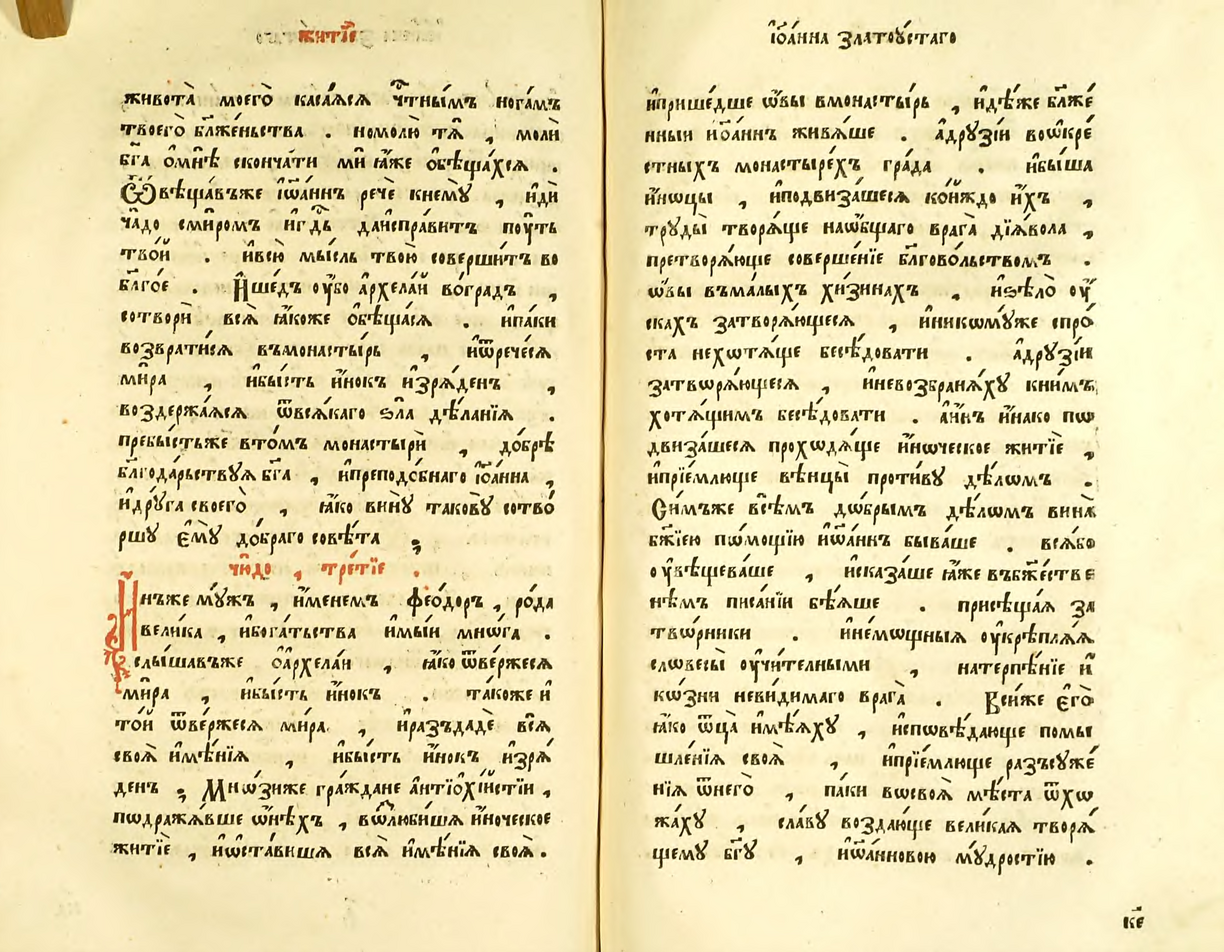 житїе
живота̀ моего̀ касаѧсѧ чⷭ҇тны́мъ нога́мъ
твоего̀ бл҃же́ньства . но молю̀ тѧ̀ , моли̇̀
бг҃а ѡ҆мнѣ̀ сконча́ти ми ꙗ҆́же ѻ҆бѣща́хсѧ .
Ѿвѣща́въже і҆ѡа́ннъ речѐ кнемꙋ̀ , и҆ди̇̀
ча́до сми́ромъ и҆гдⷭ҇ь даи҆спра́витъ пꙋ́ть
тво́й . и҆всю̀ мы́сль твою̀ соверши́тъ во
бл҃го́е . И҆ше́дъ оу҆́бо а҆рхела́й во́градъ ,
сотвори̇̀ всѧ̀ ꙗ҆́коже ѻ҆бѣща́сѧ . и҆па́ки
возврати́сѧ въмонасты́рь , и҆ѿрече́сѧ
ми́ра , и҆бы́сть и҆́нокъ и҆зрѧ́денъ ,
воздержа́ѧсѧ ѿвсѧ́каго ѕла̀ дѣ́ланїѧ .
пребы́стьже вто́мъ монастыри̇̀ , до́брѣ
бл҃года́рьствꙋѧ бг҃а , и҆преподо́бнаго і҆ѡа́нна ,
и҆дрꙋ́га своего̀ , ꙗ҆́ко винꙋ̀ таковꙋ̀ сотво́
ршꙋ є҆мꙋ̀ до́браго совѣ́та ;
чю́до , тре́тїе .
И҆́нъже мꙋ́жъ , и҆́менемъ ѳео́доръ , ро́да
вели́ка , и҆бога́тьства и҆мы́и мно́га .
слы́шавъже ѡ҆а҆рхела́и , ꙗ҆́ко ѿве́ржесѧ
ми́ра , и҆бы́сть и҆́нокъ . та́коже и҆
то́и ѿве́ржесѧ ми́ра , и҆разъдадѐ всѧ̀
своѧ̀ и҆мѣ́нїѧ , и҆бы́сть и҆́нокъ и҆зрѧ́
денъ ; Мно́зиже гра́ждане а҆нтїѻхі́йстїи ,
пѡдража́вше ѡ҆нѣ́хъ , вѡзлюби́шѧ и҆́ноческое
житїѐ , и҆ѡста́вишѧ всѧ̀ и҆мѣ́нїѧ своѧ̀ .
і҆ѡа́нна златоꙋ́стаго
и҆прише́дше ѡ҆́вы вмонасты́рь , и҆дѣ́же бл҃же́
нныи и҆ѡа́ннъ живѧ́ше . а҆дрꙋзі́и вѡѻ҆кре́
стныхъ монастыре́хъ гра́да . и҆бы́ша
и҆́нѡцы , и҆подвиза́шесѧ ко́йждо и҆́хъ ,
трꙋды̀ творѧ́ще наѻ҆́бщаго врага̀ дїѧ́вола ,
претворѧ́юще соверше́нїе бл҃гово́льствомъ .
ѡ҆́вы въма́лыхъ хи́зинахъ , и҆ѕѣлѡ̀ оу҆́
скахъ затворѧ́ющесѧ , и҆никѡмꙋ́же спро́
ста нехотѧ́ще бесѣ́довати . а҆дрꙋзі́и
затвѡрѧ́ющесѧ , и҆невозбранѧ́хꙋ кни́мъ
хотѧ́щимъ бесѣ́довати . а҆и҆́нъ и҆́нако пѡ
двиза́шесѧ прохѡдѧ́ще и҆́нѡческое житїѐ ,
и҆прїе́млюще вѣнцы̀ проти́вꙋ дѣ́лѡмъ .
Си́мъже всѣ́мъ дѡ́брымъ дѣ́лѡмъ вина̀
бж҃їею пѡ́мощїю и҆ѡа́ннъ быва́ше . всѧ́бо
оу҆вѣщева́ше , и҆сказа́ше ꙗ҆́же въбж҃е́стве
нѣмъ писа́нїи бѣ́ѧше . присѣща́ѧ за
твѡ́рники . и҆не́мѡщныѧ оу҆крѣплѧ́ѧ
словесы̀ оу҆чи́телными , натерпѣ́нїе и҆
кѡ́зни неви́димаго врага̀ . Вси́же є҆го̀
ꙗ҆́ко ѿц҃а и҆мѣ́ѧхꙋ , и҆спѡвѣ́дающе помы
шле́нїѧ своѧ̀ , и҆прїе́млюще разъсꙋже́
нїѧ ѿнего̀ , па́ки вѡсвоѧ̀ мѣ́ста ѿхѡ
жа́хꙋ , сла́вꙋ воздаю́ще вели́каѧ творѧ́
щемꙋ бг҃ꙋ , и҆ѡа́нновою мꙋ́дростїю .
к҃е